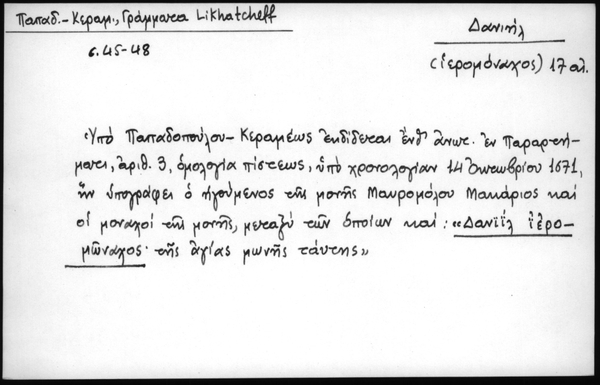 Παπαδ.-Κεραμ., Γράμματα Likhatcheff
σ. 45-48
Δανιήλ
(ἱερομόναχος) 17 αἰ.
Ὑπὸ Παπαδοπούλου-Κεραμέως ἐκδίδεται ἔνθ' ἀνωτ. ἐν Παραρτή-
ματι, ἀριθ. 3, ὁμολογία πίστεως, ὑπὸ χρονολογίαν 14 Ὀκτωβρίου 1671,
ἣν ὑπογράφει ὁ ἡγούμενος τῆς μονῆς Μαυρομόλου Μακάριος καὶ
οἱ μοναχοὶ τῆς μονῆς, μεταξὺ τῶν ὁποίων καὶ: «Δανιΐλ ἱερο-
μῶναχος· τῆς ἁγίας μωνῆς τάυτης»